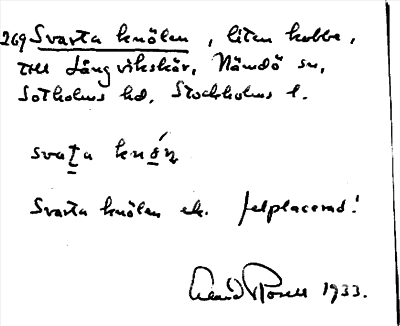 269 Svarta knölen, liten kobbe,
till Långvikskär, Nämdö sn,
Sotholms hd, Stockholms l.
svaṯa knö̱ɳ
Svarta knölen ek. felplacerad!
1933.